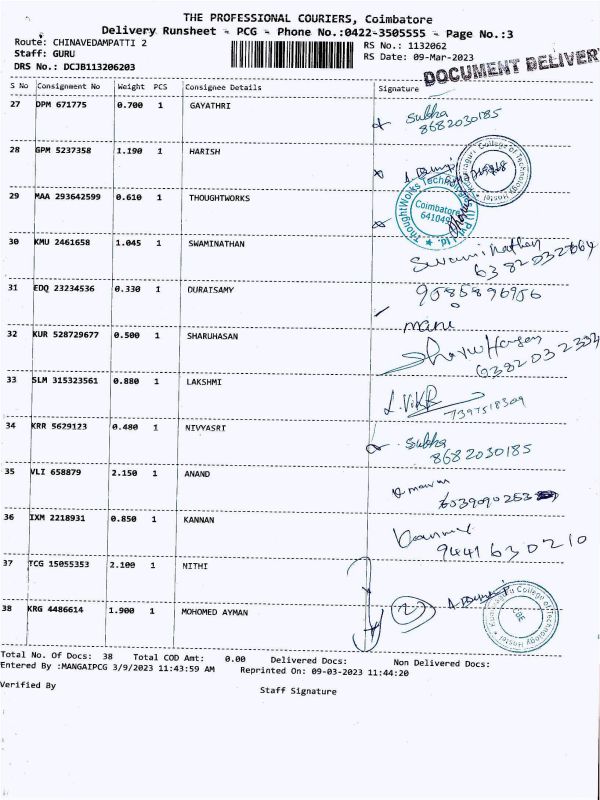 THE PROFESSIONAL COURIERS, Coimbatore
Delivery Runsheet - PCG - Phone No.:0422-3505555 - Page No.:3
Route: CHINAVEDAMPATTI 2 RS No.: 1132062
Staff: GURU RS Date: 09-Mar-2023
DRS No.: DCJB113206203 DOCUMENT DELIVER
S No Consignment No Weight PCS Consignee Details Signature
27 DPM 671775 0.700 1 GAYATHRI Subha
8682030185
28 GPM 5237358 1.190 1 HARISH
College of Technology Hostel
29 MAA 293642599 0.610 1 THOUGHTWORKS
ThoughtWorks Technologies (I) Pvt Ltd.
Coimbatore
641049
30 KMU 2461658 1.045 1 SWAMINATHAN Swaminathan
31 EDQ 23234536 0.330 1 DURAISAMY 9585896956
mani
32 KUR 528729677 0.500 1 SHARUHASAN
6382032334
33 SLM 315323561 0.880 1 LAKSHMI
7397518309
34 KRR 5629123 0.480 1 NIVYASRI Subha
8682030185
35 VLI 658879 2.150 1 ANAND
36 IXM 2218931 0.850 1 KANNAN
9441630210
37 TCG 15055353 2.100 1 NITHI
38 KRG 4486614 1.900 1 MOHOMED AYMAN 2
College of Technology Hostel
CBE
Total No. Of Docs: 38 Total COD Amt: 0.00 Delivered Docs: Non Delivered Docs:
Entered By :MANGAIPCG 3/9/2023 11:43:59 AM Reprinted On: 09-03-2023 11:44:20
Verified By Staff Signature